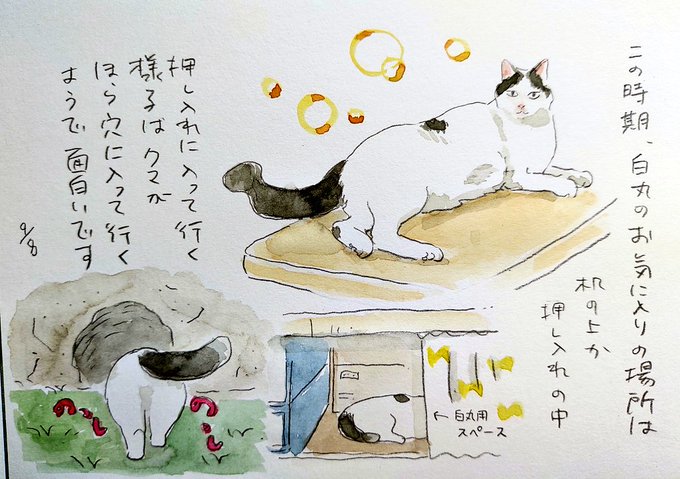 この時期、白丸のお気に入りの場所は
机の上か
押し入れの中
押し入れに入って行く
様子はクマが
ほら穴に入って行く
ようで面白いです
9/8
← 白丸用
スペース